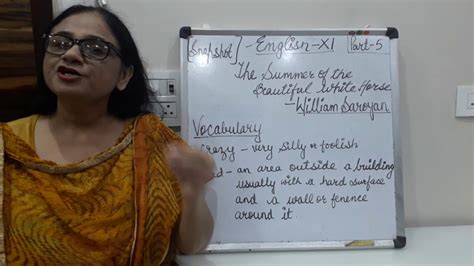 [Snapshot] - English-XI Part-5
The Summer of the
Beautiful White Horse
- William Saroyan
Vocabulary
crazy - very silly or foolish
- an area outside a building
usually with a hard surface
and a wall or fenence
around it.